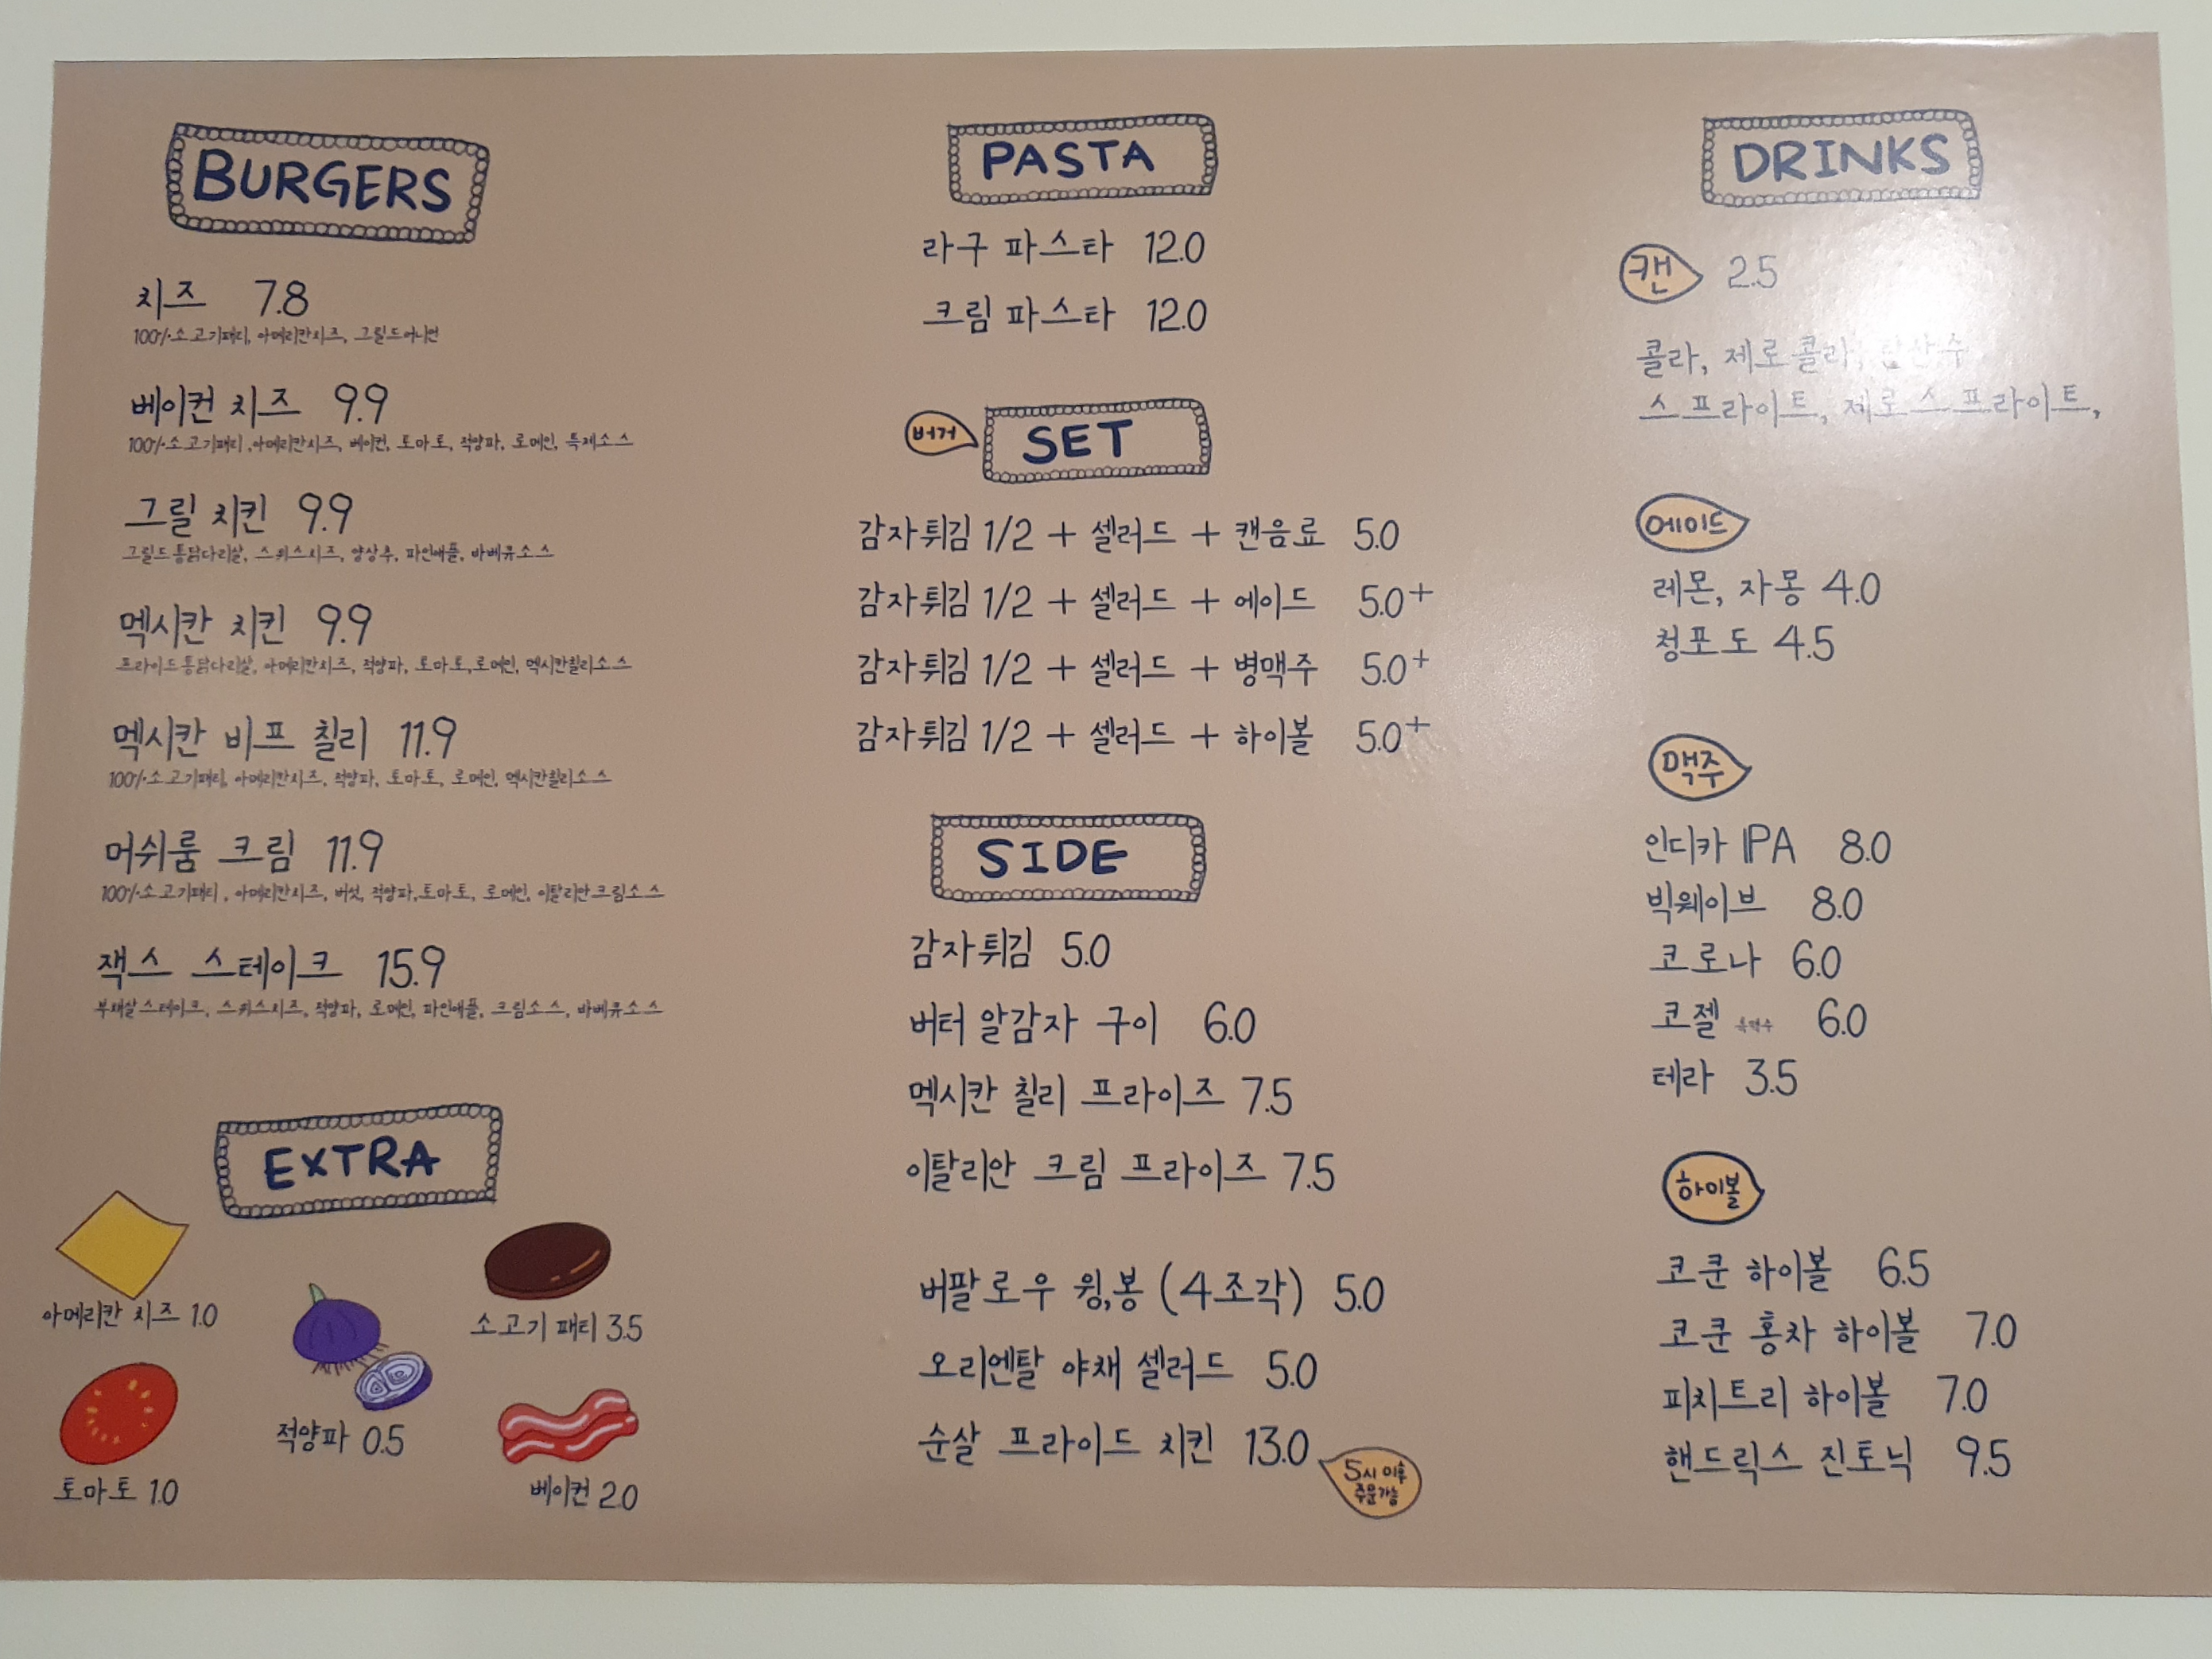 BURGERS
치즈 7.8
100% 소고기패티, 아메리칸치즈, 그릴드어니언
베이컨 치즈 9.9
100% 소고기패티, 아메리칸치즈, 베이컨, 토마토, 적양파, 로메인, 특제소스
그릴 치킨 9.9
그릴드통닭다리살, 스위스치즈, 양상추, 파인애플, 바베큐소스
멕시칸 치킨 9.9
프라이드통닭다리살, 아메리칸치즈, 적양파, 토마토, 로메인, 멕시칸칠리소스
멕시칸 비프 칠리 11.9
100% 소고기패티, 아메리칸치즈, 적양파, 토마토, 로메인, 멕시칸칠리소스
머쉬룸 크림 11.9
100% 소고기패티, 아메리칸치즈, 버섯, 적양파, 토마토, 로메인, 이탈리안크림소스
잭스 스테이크 15.9
부채살스테이크, 스위스치즈, 적양파, 로메인, 파인애플, 크림소스, 바베큐소스
EXTRA
아메리칸 치즈 1.0
소고기 패티 3.5
적양파 0.5
토마토 1.0
베이컨 2.0
PASTA
라구 파스타 12.0
크림 파스타 12.0
버거 SET
감자튀김 1/2 + 셀러드 + 캔음료 5.0
감자튀김 1/2 + 셀러드 + 에이드 5.0+
감자튀김 1/2 + 셀러드 + 병맥주 5.0+
감자튀김 1/2 + 셀러드 + 하이볼 5.0+
SIDE
감자튀김 5.0
버터 알감자 구이 6.0
멕시칸 칠리 프라이즈 7.5
이탈리안 크림 프라이즈 7.5
버팔로우 윙,봉 (4조각) 5.0
오리엔탈 야채 셀러드 5.0
순살 프라이드 치킨 13.0
5시 이후
주문가능
DRINKS
캔 2.5
콜라, 제로콜라, 탄산수
스프라이트, 제로스프라이트,
에이드
레몬, 자몽 4.0
청포도 4.5
맥주
인디카 IPA 8.0
빅웨이브 8.0
코로나 6.0
코젤 6.0
테라 3.5
하이볼
코쿤 하이볼 6.5
코쿤 홍차 하이볼 7.0
피치트리 하이볼 7.0
핸드릭스 진토닉 9.5